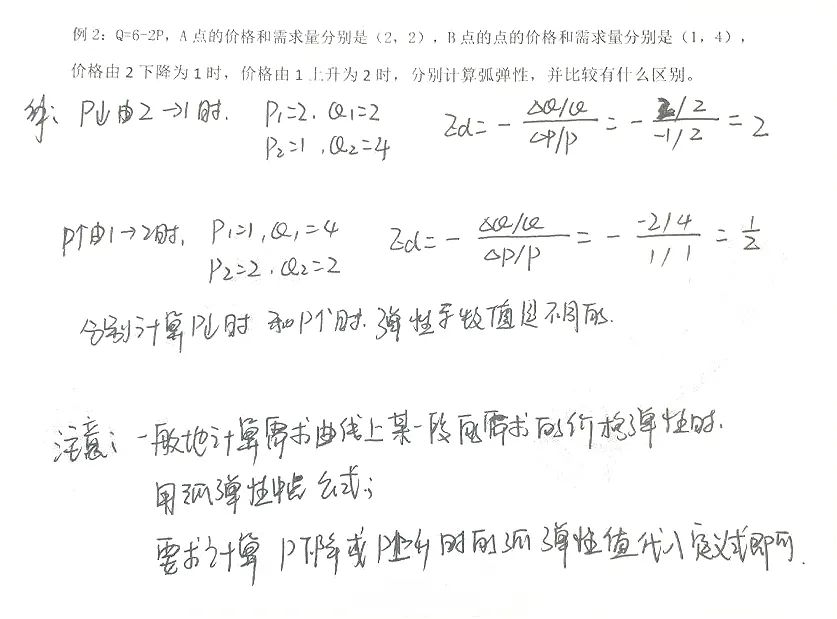 例2：Q=6-2P，A点的价格和需求量分别是（2，2），B点的点的价格和需求量分别是（1，4），
价格由2下降为1时，价格由1上升为2时，分别计算弧弹性，并比较有什么区别。
解：P↓由2→1时. P₁=2. Q₁=2 Ed = - (ΔQ/Q)/(ΔP/P) = - (2/2)/(-1/2) = 2
P₂=1 . Q₂=4
P↑由1→2时, P₁=1, Q₁=4 Ed = - (ΔQ/Q)/(ΔP/P) = - (-2/4)/(1/1) = 1/2
P₂=2 . Q₂=2
分别计算P↓时和P↑时. 弹性系数值是不同的.
注意：一般地计算需求曲线上某一段的需求的价格弹性时.
用弧弹性中点公式；
要求计算P下降或P上升时的弧弹性值代入定义式即可.